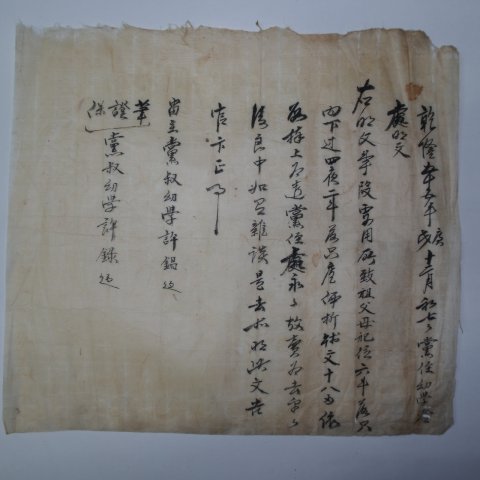 乾隆五十五年庚戌十二月初七日黨侄幼學
處明文
右明文事段要用所致祖父母祀位六斗落只
內下边四夜二斗落只庫伊折錢文十八兩依
數捧上爲遣黨侄處永永放賣爲去乎日
後良中如有雜談是去等將此文告
官卞正事
畓主黨叔幼學許
筆
證
保黨叔幼學許錄